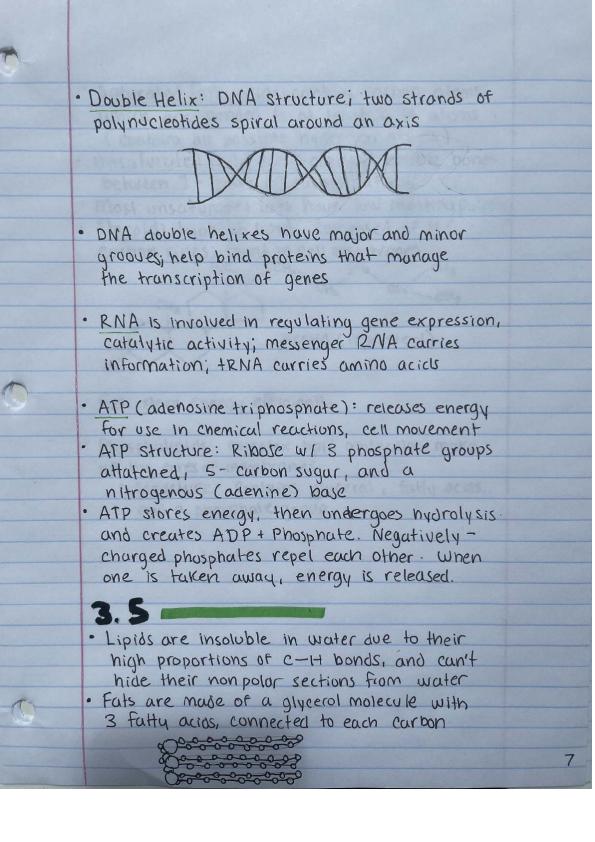 • Double Helix: DNA structure; two strands of
polynucleotides spiral around an axis
• DNA double helixes have major and minor
grooves; help bind proteins that manage
the transcription of genes
• RNA is involved in regulating gene expression,
catalytic activity; messenger RNA carries
information; tRNA carries amino acids
• ATP (adenosine triphosphate): releases energy
for use in chemical reactions, cell movement
• ATP structure: Ribose w/ 3 phosphate groups
attatched, 5-carbon sugar, and a
nitrogenous (adenine) base
• ATP stores energy, then undergoes hydrolysis
and creates ADP + Phosphate. Negatively-
charged phosphates repel each other. When
one is taken away, energy is released.
3.5
• Lipids are insoluble in water due to their
high proportions of C-H bonds, and can't
hide their non polar sections from water
• Fats are made of a glycerol molecule with
3 fatty acids, connected to each carbon
7